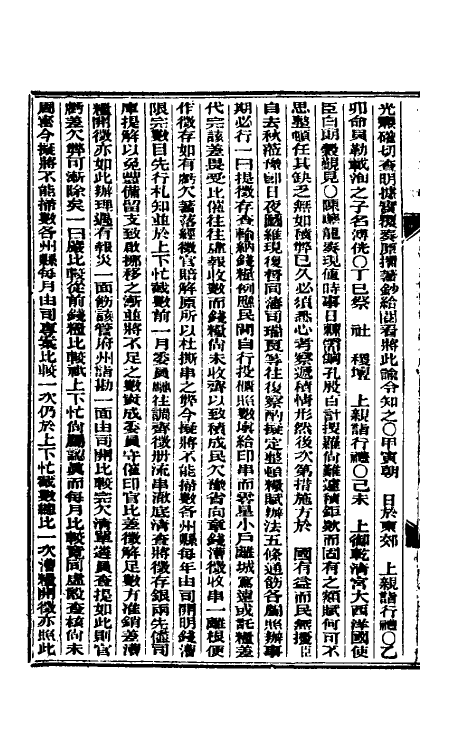 光驄確切查明據實覆奏原摺著鈔給閱看將此諭令知之○甲寅朝　日於東郊　上親詣行禮○乙
卯命貝勒載洵之子名溥侊○丁巳祭　社　稷壇　上親詣行禮○己未　上御乾清宮大西洋國使
臣白朗穀觀見○陳夔龍奏現值時事日棘需餉孔殷百計搜羅尚難遽積鉅款而固有之額賦何可不
思整頓任其缺乏無如積弊已久必須悉心考察遞積情形然後次第措施方於　國有益而民無擾臣
自去秋蒞豫卽日夜圖維現復督同藩司瑞良等往復察酌擬定整頓糧賦辦法五條通飭各屬照辦事
期必行一曰提徵存查輸納錢糧例應民間自行投櫃照數填給印串而零星小戶離城寫遠或託糧差
代完該差畏受比催往往虛報收數而錢糧尚未收齊以致積成民欠豫省向章錢漕徵收串一離根便
作徵存如有虧欠著落經徵官賠解原所以杜撕串之弊今擬將不能掃數各州縣每年由司開明錢漕
限完數目先行札知並於上下忙截數前一月委員馳往調齊徵册流串澈底清查將徵存銀兩先儘司
庫提解以免豐備留支致啟挪移之漸並將不足之數責成委員守催印官比差徵解足數方准銷差漕
糧開徵亦如此辦理遇有報災一面飭該管府州詣勘一面由司開比較完欠清單遴員查提如此則官
虧差欠弊可漸除矣一曰嚴比較從前錢糧比較祇上下忙尚屬認眞而每月比較竟同虛設查核尚未
周密今擬將不能掃數各州縣每月由司專案比較一次仍於上下忙截數總比一次漕糧開徵亦照此